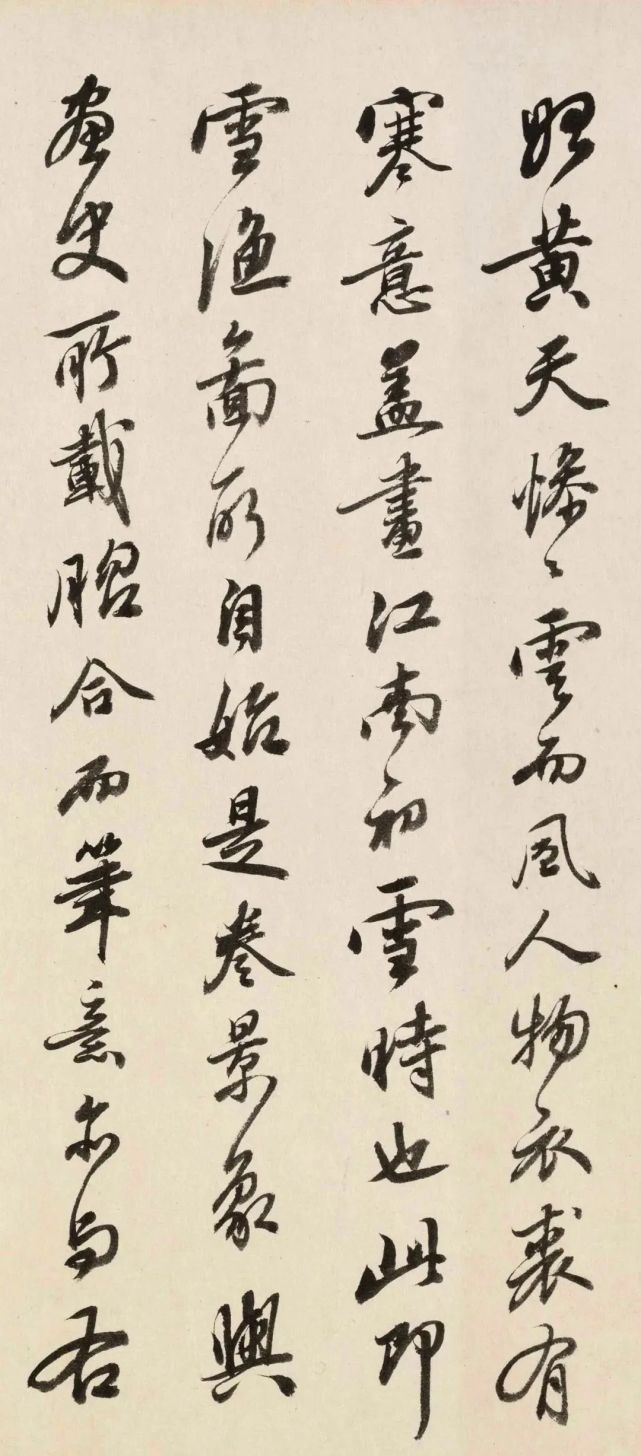 照黄天惨〻雲而風人物衣裘有
寒意盖畫江南初雪時也此即
雪漁圖所自始是卷景象與
畫史所載脗合而筆意亦与右